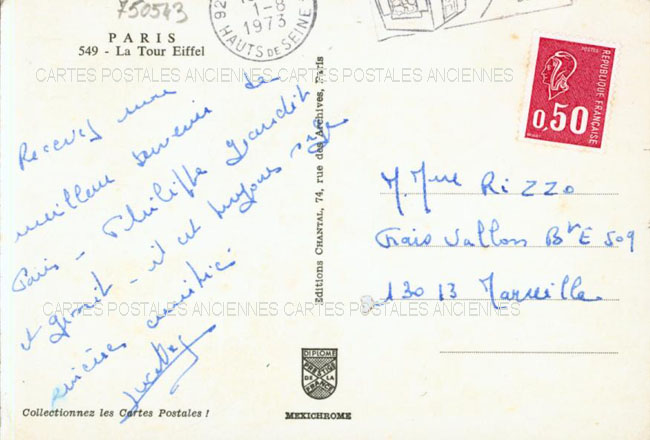 750543
92
1-8
1973
HAUTS DE SEINE
PARIS
549 - La Tour Eiffel
CARTES POSTALES ANCIENNES CARTES POSTALES ANCIENNES
POSTES
REPUBLIQUE FRANÇAISE
0,50
Recevez mon
meilleur souvenir de
Paris - Philippe grandit
et grossit - il est toujours
sincères amitiés
Editions CHANTAL, 74, rue des Archives, Paris
M. Mme RIZZO
Frais Vallon Bt E 509
13013 Marseille
CARTES POSTALES ANCIENNES CARTES POSTALES ANCIENNES
DIPLOME
PRESTIGE
DE LA
FRANCE
Collectionnez les Cartes Postales !
MEXICHROME